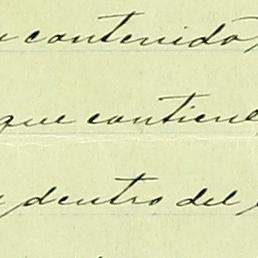 contenido
que contiene
dentro del